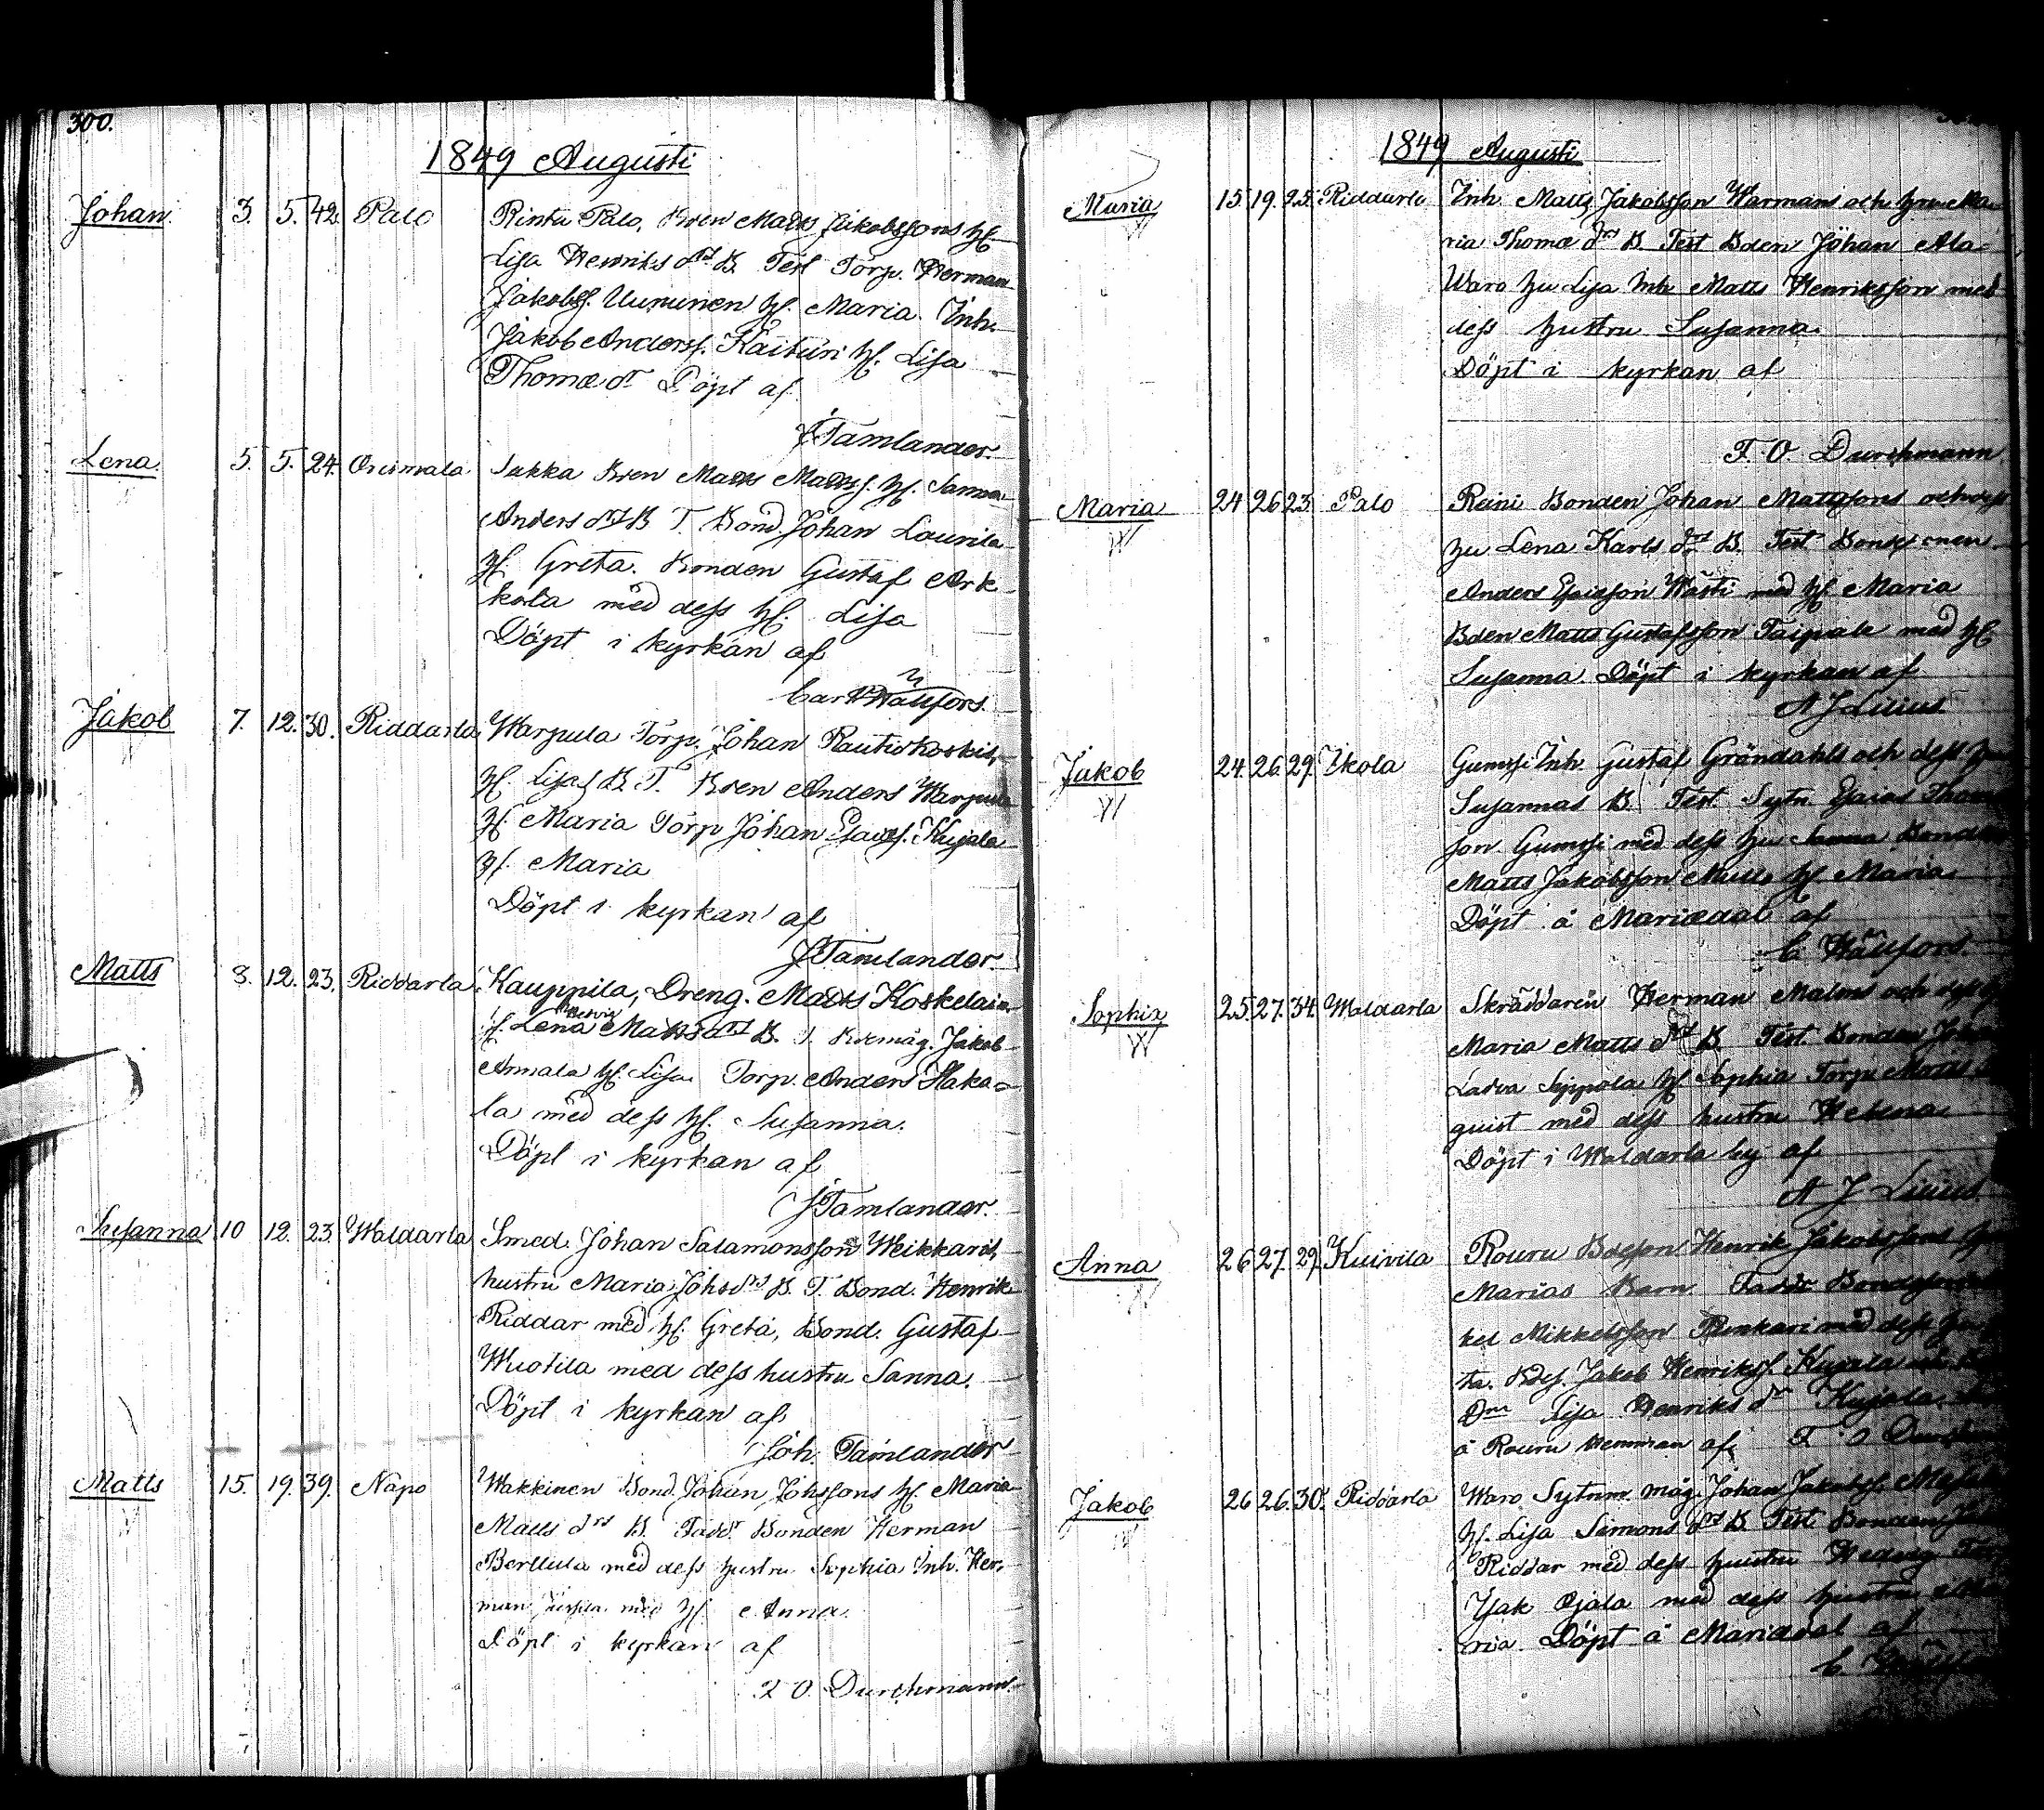 300.
1849 Augusti
Johan. 3. 5. 42. Palo Rinta Palo, Bven Matts Jakobssons hf.
Lisa Henriks drs B. Test Torp. Herman
Jakobss. Uuninen hf. Maria. Inh.
Jakob Anderss. Kaituri hf. Lisa
Thomæ dr Döpt af
J Tamlander.
Lena. 5. 5. 24. Orismala Sukka Bven Matts Mattss. hf. Sanna
Anders drs B T. Bond. Johan Laurila
hf. Greta. Bonden Gustaf Ark-
kola med dess hf. Lisa
Döpt i kyrkan af
Carl Wallfors.
Jakob 7. 12. 30. Riddarla Warpula Torp. Johan Rautiokoskis,
hf. Lisas B. T. Bven Anders Warpula
hf. Maria Torp Johan Esaiss. Kujala
hf. Maria
Döpt i kyrkan af
J Tamlander.
Matts 8. 12. 23. Riddarla Kauppila, Dreng. Matts Koskelain
hf. Lena Hedvig Matts drs B. T. Bdemåg. Jakob
Annala hf. Lisa. Torp. Anders Haka-
la med dess hf. Susanna.
Döpt i kyrkan af
J Tamlander.
Susanna 10 12. 23. Waldarla Smed. Johan Salamonsson Weikkars,
hustru Maria Johs drs B. T. Bond. Henrik
Riddar med hf. Greta, Bond. Gustaf
Wuotila med dess hustru Sanna.
Döpt i kyrkan af
Joh. Tamlander
Matts 15. 19. 39. Näpo Wakkinen Bond. Johan Johssons hf. Maria
Matts drs B. Fadd. Bonden Herman
Berttula med dess hustru Sophia Inh. Her-
man med hf. Anna.
Döpt i kyrkan af
F O. Durchmann.
1849 Augusti
Maria 15. 19. 25. Riddarla Inh Matts Jakobsson Warmans och hu Ma-
ria Thomæ drs B. Test Bden Johan Ala-
Waro hu Lisa Inh Matts Henriksson med
dess hustru Susanna.
Döpt i kyrkan af
F. O. Durchmann
Maria 24 26 23. Palo Reini Bonden Johan Mattssons och dess
hu Lena Karls drs B. Test
Anders Esaisson Wästi med hf Maria
Bden Matts Gustafsson Taipale med hf
Susanna Döpt i kyrkan af
A J Lilius
Jakob 24. 26. 29. Ikola Gumsi Inh. Gustaf Grändahls och dess
Susannas B. Test. Sytn Esaias Thom
son Gumsi med dess hu Sanna
Matts Jakobsson hf Maria
Döpt å Mariædal af
C Wallfors.
Sophia 25. 27. 34. Waldarla Skräddaren Herman Malms och dess
Maria Matts drs B. Test. Bonden
Ladva Seppola hf Sophia Torp Matts
quist med dess hustru Helena
Döpt i Waldarla by af
A J Lilius
Anna 26 27. 29. Kuivila Rouru Bdesson Henrik Jakobssons
Marias Barn. Faddr
kel Mikkelsson med dess
ta. Bdes. Jakob Henrikss. Kujala
Drn Lisa Henriks dr Kujala.
å Rouru hemman af F O
Jakob 26 26. 30. Riddarla Waro Sytnm. måg. Johan Jakobss.
hf. Lisa Simons drs B. Test Bonden
Riddar med dess hustru Hedvig
Isak Ojala med dess hustru
ria. Döpt å Mariædal af
C